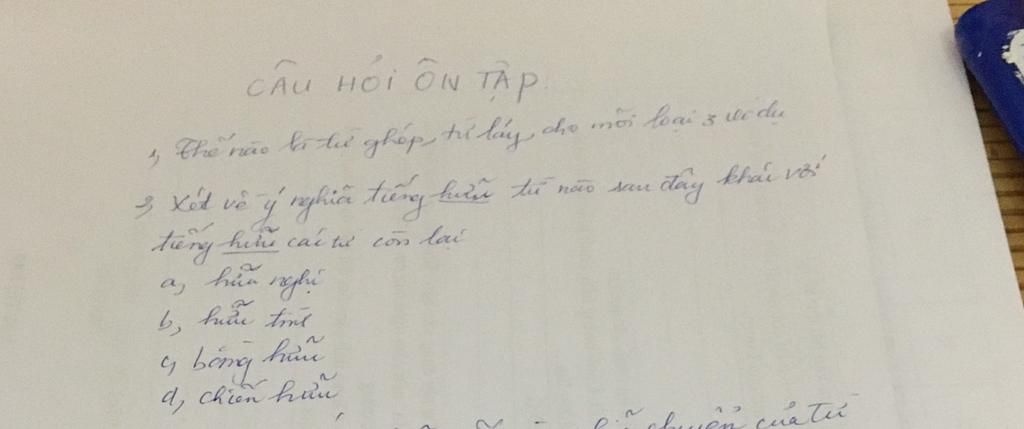 CÂU HỎI ÔN TẬP
1, Thế nào là từ ghép, từ láy, cho mỗi loại 3 ví dụ
3 Xét về ý nghĩa tiếng hữu từ nào sau đây khác với
tiếng hữu các từ còn lại
a, hữu nghị
b, hữu tình
c, bằng hữu
d, chiến hữu
chuyển của từ